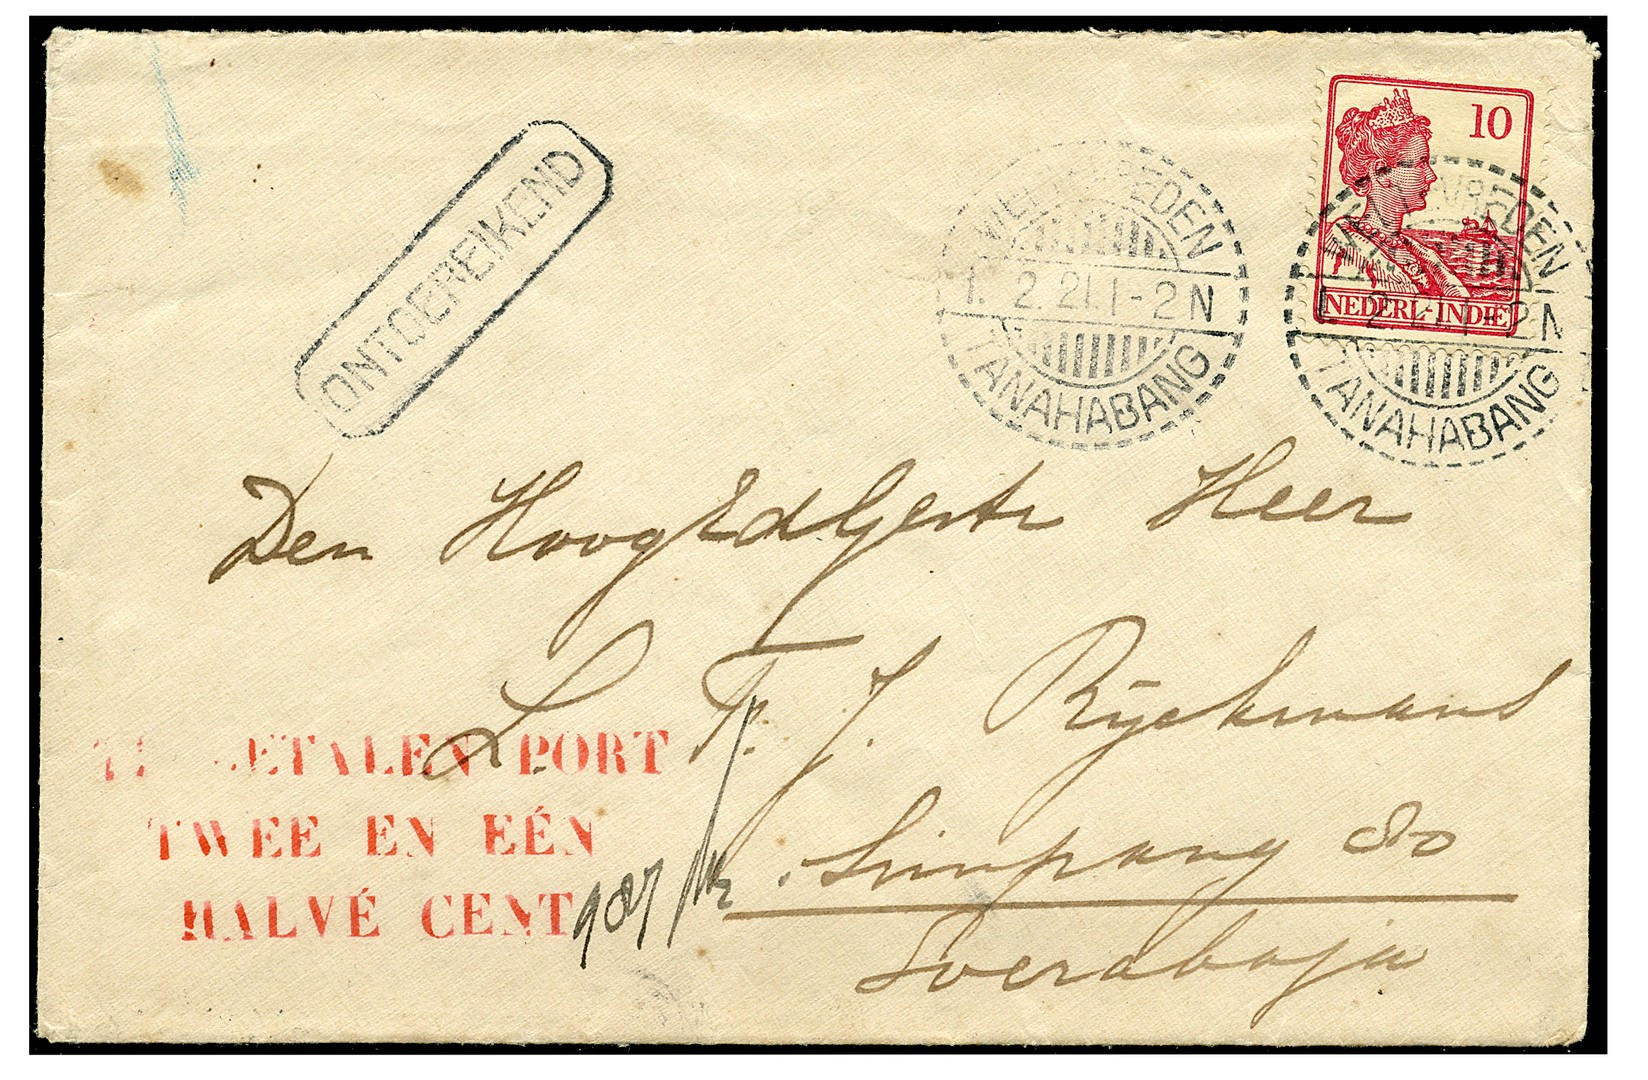 10
NEDERL-INDIË
ONTOEREIKEND
WELTEVREDEN
1. 2.21.1-2N
TANAHABANG
WELTEVREDEN
1. 2.21.1-2N
TANAHABANG
Den HoogEdlGestr Heer
L. F. J. Ryckmans
Simpang 80
Soerabaja
TE BETALEN PORT
TWEE EN EÉN
HALVÉ CENT